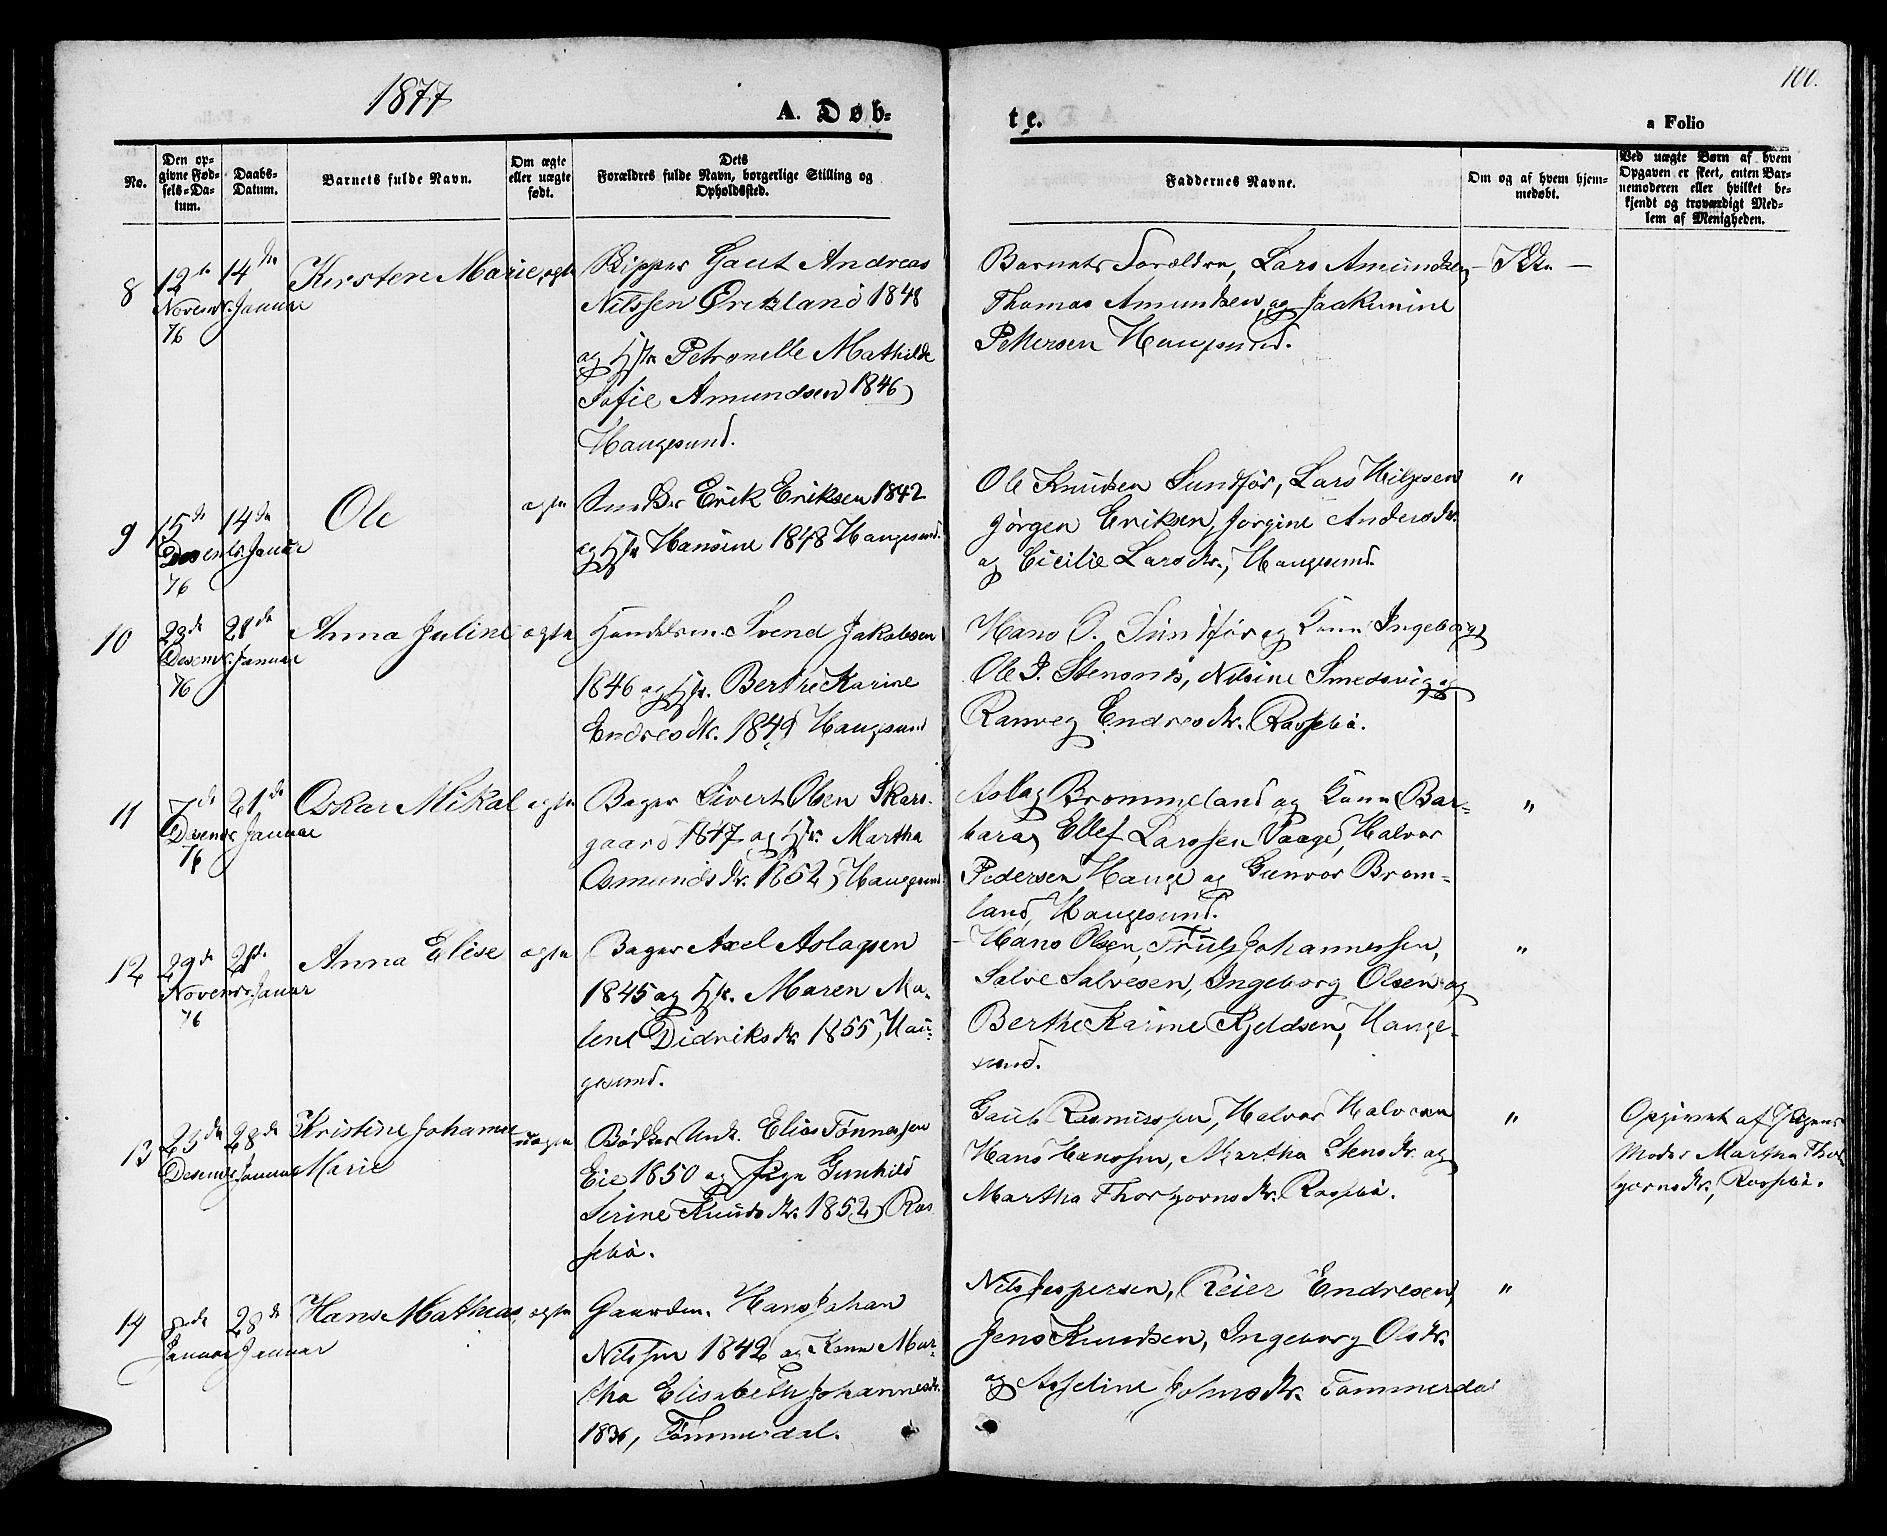 1877
A. Døb-
te.
100.
a Folio
No.
Den op-
givne Fød-
sels-Da-
tum.
Daabs-
Datum.
Barnets fulde Navn.
Om ægte
eller uægte
født.
Dets
Forældres fulde Navn, borgerlige Stilling og
Opholdssted.
Faddernes Navne.
Om og af hvem hjem-
medøbt.
Ved uægte Børn af hvem
Opgaven er skeet, enten Bar-
nemoderen eller hvilket be-
kjendt og troværdigt Med-
lem af Menigheden.
8
12te
Novembr.
76
14de
Januar
Kirsten Marie
ægte
Skipper Gaut Andreas
Nilssen Öreksland 1848
og Hstr Petronelle Mathilde
Sofie Amundsen 1846,
Haugesund.
Barnets Forældre, Lars Amundsen,
Thomas Amundsen og Jaakimine
Pettersen Haugesund.
– Ikke –
9
15de
Desembr.
76
14de
Januar
Ole
ægte
Snedker Erik Eriksen 1842
og Hstr Hansine 1848 Haugesund.
Ole Knudsen Sundför, Lars Helgesen
Jörgen Eriksen, Jorgine Andersdtr.
og Cicilie Larsdtr., Haugesund.
"
10
23de
Desembr.
76
21de
Januar
Anna Juline
ægte
Handelsm. Svend Jakobsen
1846 og Hstr. Berthe Karine
Endresdtr. 1849 Haugesund
Hans O. Sundför og Kone Ingeborg,
Ole J. Stensnes, Nilsine Smedsvig og
Ranveg Endresdtr. Rossebö.
11
7de
Desembr
76
21de
Januar
Oskar Mikal
ægte
Bager Sivert Olsen Skars-
gaard 1847 og Hstr. Martha
Osmundsdtr. 1852, Haugesund
Aslag Brommeland og Kone Bar-
bara, Ellef Larssen Vaage, Halvor
Pedersen Hauge og Gunvor Brom-
land, Haugesund.
"
12
29de
Novembr.
76
21de
Januar
Anna Elise
ægte
Bager Axel Aslagsen
1845 og Hstr. Maren Ma-
lene Didriksdtr. 1855, Hau-
gesund.
Hans Olsen, Truls Johannessen,
Salve Salvesen, Ingeborg Olsen og
Berthe Karine Kjeldsen, Hauge-
sund.
"
13
23de
Desembr
28de
Januar
Kristine Johanne
Marie
uægte
Bödker Unk. Elias Tönnessen
Eie 1850 og Pige Gunhild
Serine Knudsdtr. 1852, Ros-
sebö.
Gaut Rasmussen, Halvor Halvorsen
Hans Hanssen, Martha Stensdtr. og
Martha Thorbjornsdtr. Rossebö.
"
Opgivet af Pigens
Moder Martha Thor-
bjornsdtr., Rossebö.
14
8de
Januar
28de
Januar
Hans Mathias,
ægte
Gaardm. Hans Johan
Nilssen 1842 og Kone Mar-
tha Elisabeth Johannesdtr.
1836, Tömmerdal.
Nils Jespersen, Reier Endresen,
Jens Knudsen, Ingeborg Olsdtr.
og Asseline Johnsdtr. Tömmerdal
"